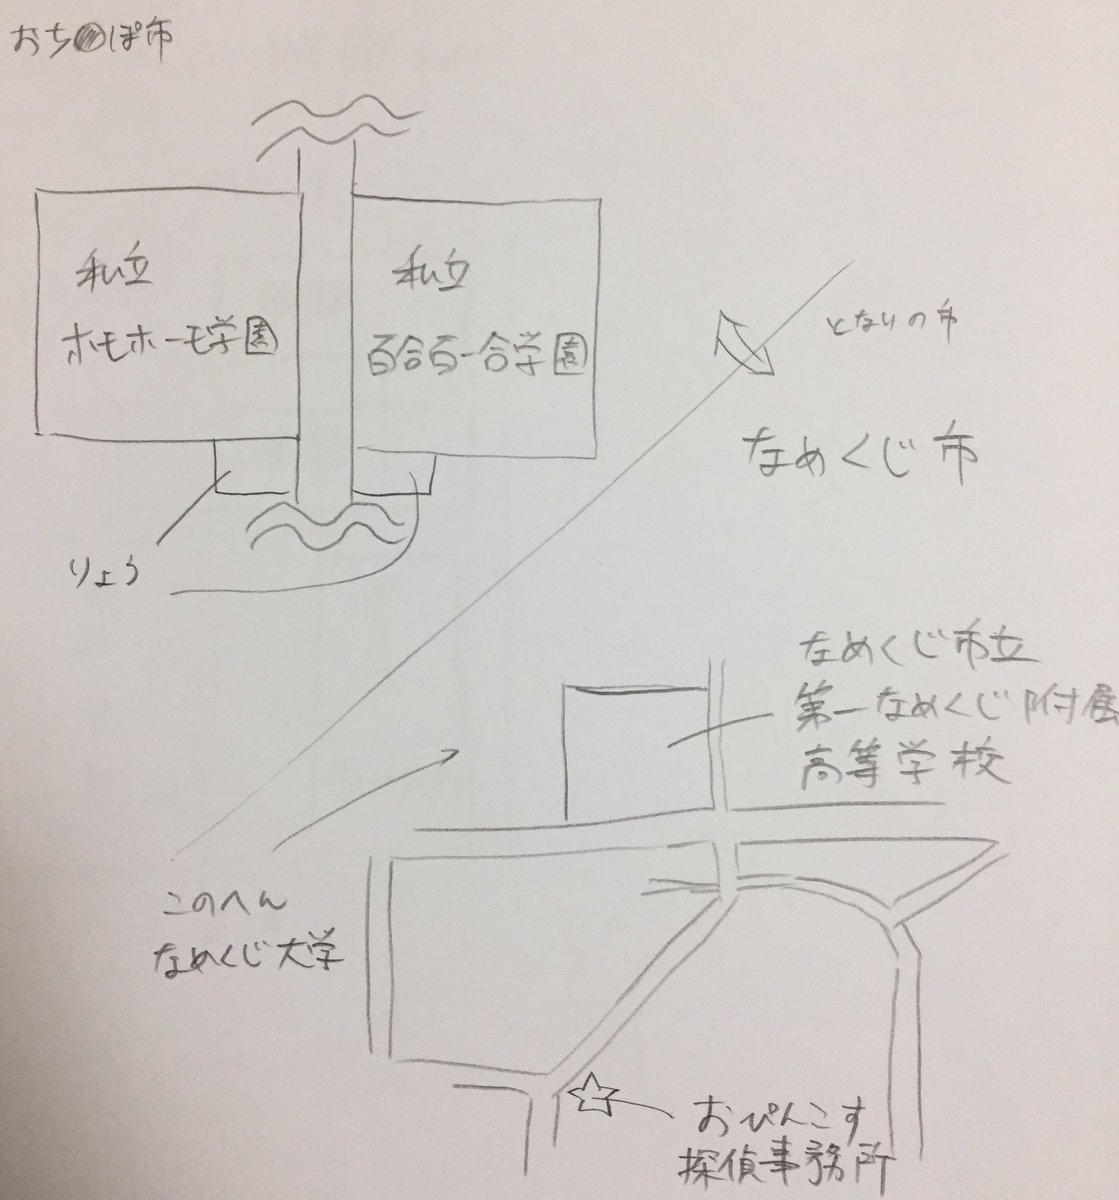 おち●ぽ市
私立
ホモホーモ学園
私立
百合百一合学園
となりの市
なめくじ市
りょう
なめくじ市立
第一なめくじ附属
高等学校
このへん
なめくじ大学
おぴんこす
探偵事務所